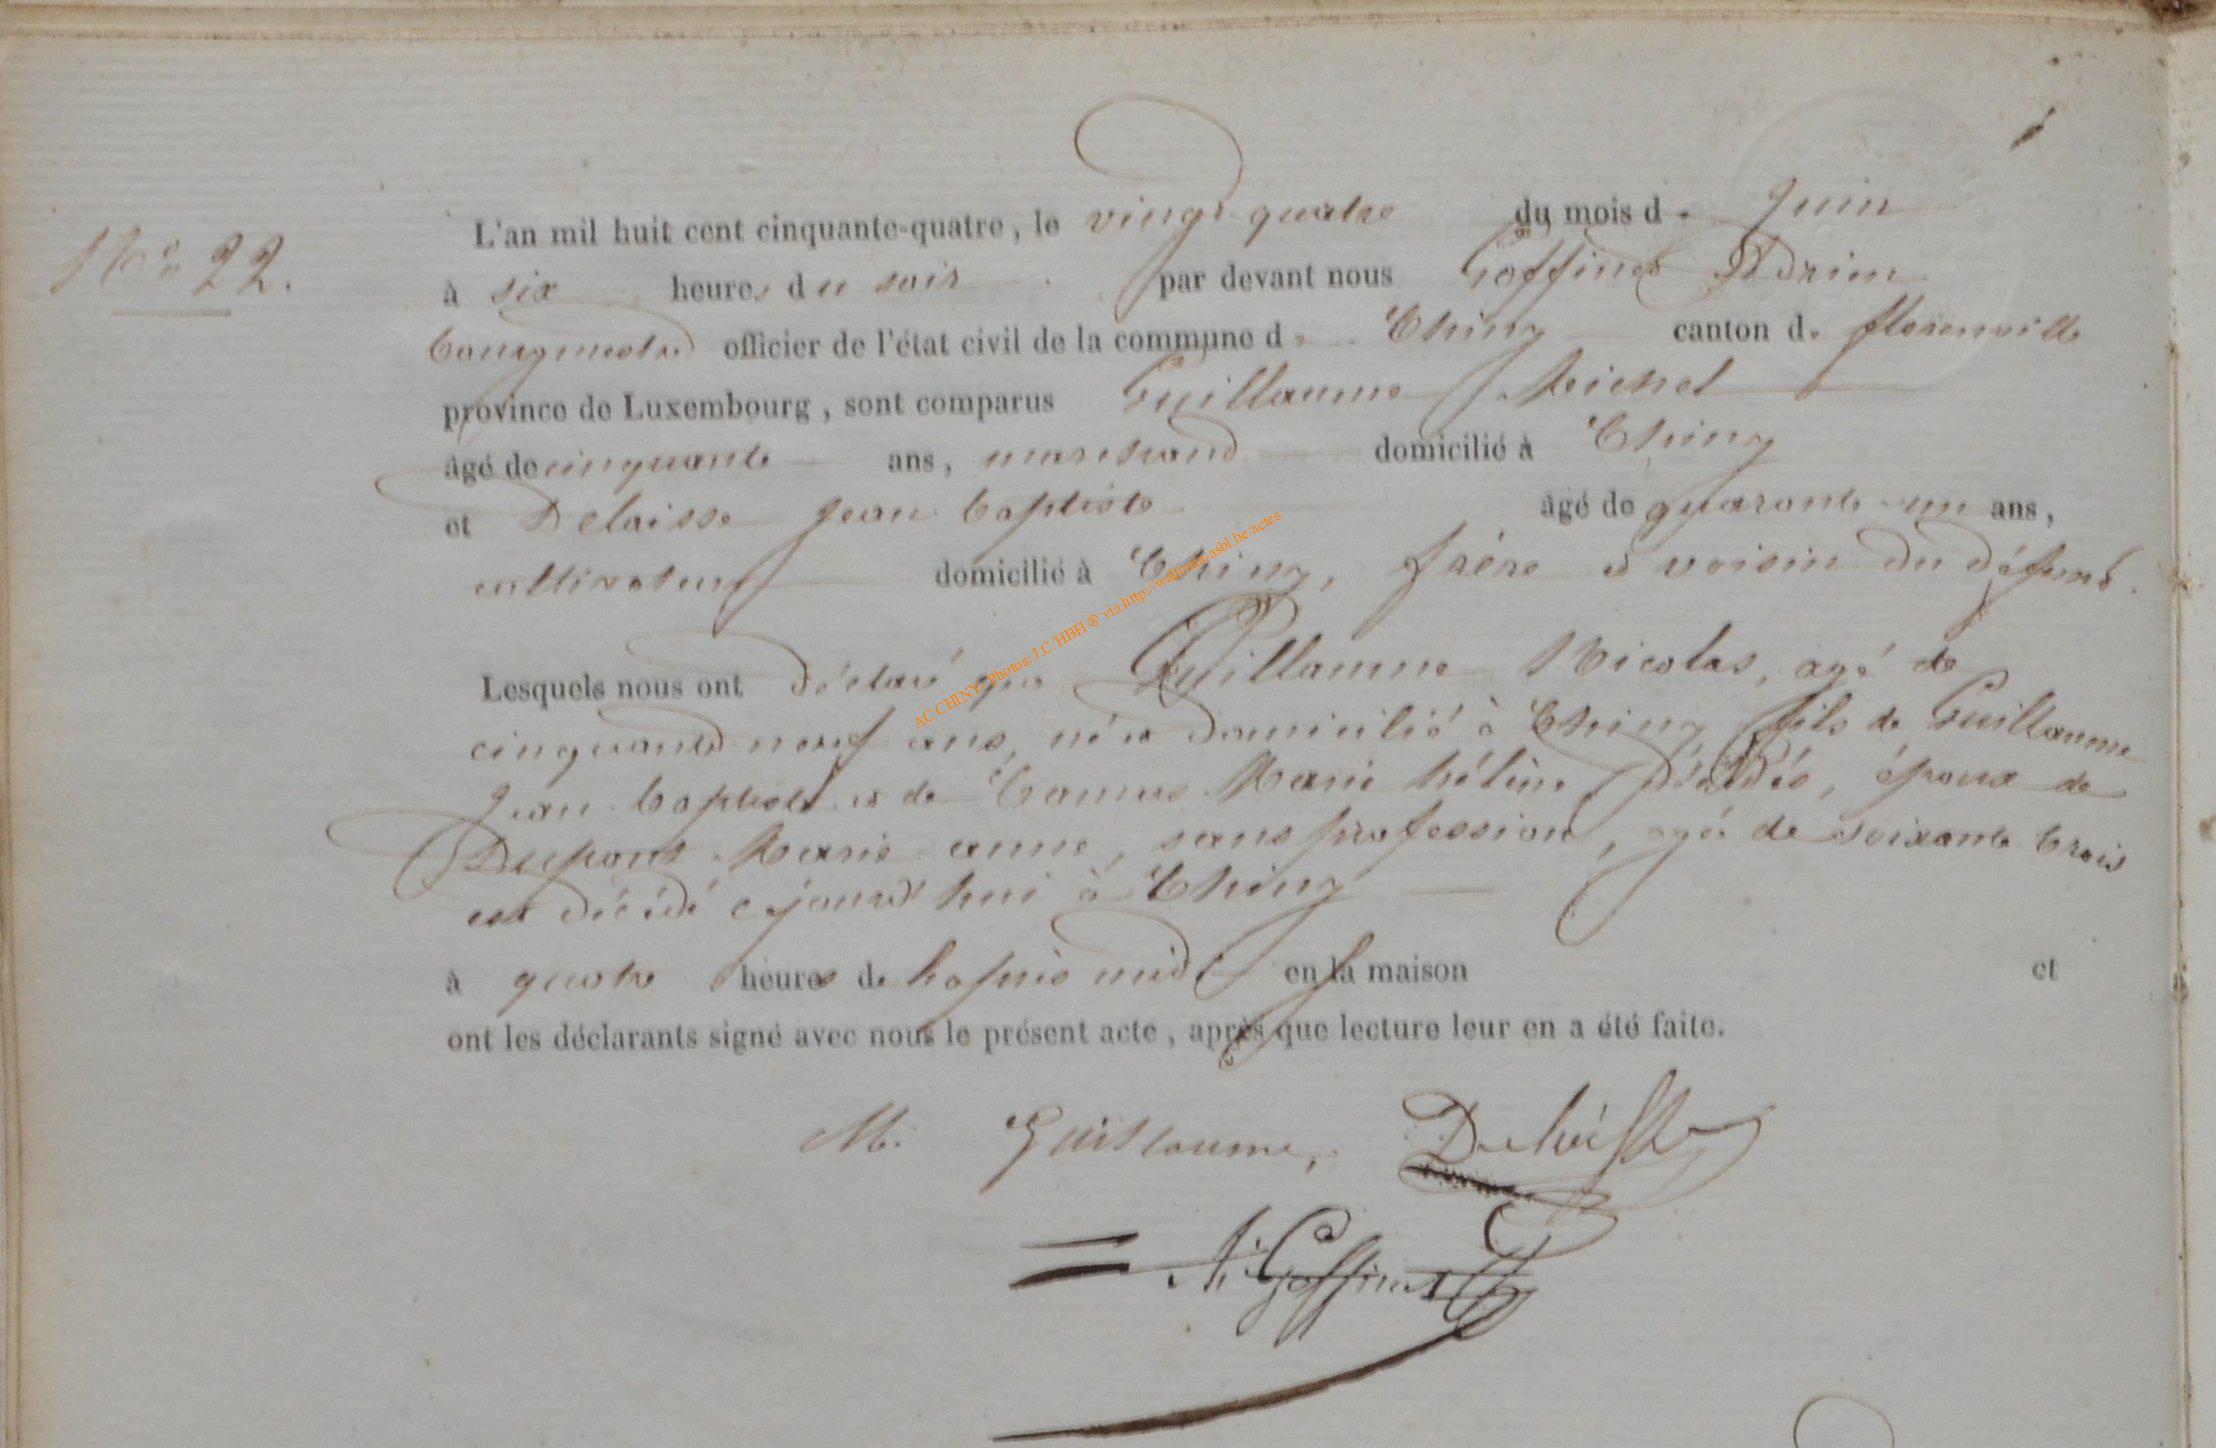 No 22.
L'an mil huit cent cinquante-quatre, le vingt quatre du mois de Juin
à six heures du soir par devant nous Goffinet Adrien
bourgmestre officier de l'état civil de la commune de Chiny canton de florenville
province de Luxembourg, sont comparus Guillaume Michel
âgé de cinquante ans, marchand domicilié à Chiny
et Delaisse Jean baptiste âgé de quarante un ans,
cultivateur domicilié à Chiny, frère et voisin du défunt.
Lesquels nous ont déclaré que Guillaume Nicolas, agé de
cinquante neuf ans, né et domicilié à Chiny, fils de Guillaume
Jean baptiste et de Camus Marie hélène, décédés, époux de
Dupont Marie anne, sans profession, agée de soixante trois
est décédé cejourd'hui à Chiny
à quatre heures de l'après midi en la maison et
ont les déclarants signé avec nous le présent acte, après que lecture leur en a été faite.
M. Guillaume, Delaisse
A. Goffinet
AC CHINY Photos: J.C/HBH ® via http://wallonia-asbl.be/actes